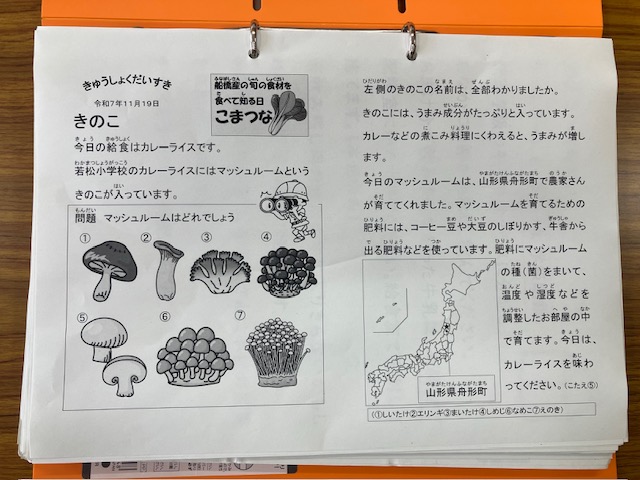 きゅうしょくだいすき
令和7年11月19日
きのこ
船橋産の旬の食材を
食べて知る日
こまつな
今日の給食はカレーライスです。
若松小学校のカレーライスにはマッシュルームという
きのこが入っています。
問題 マッシュルームはどれでしょう
① ② ③ ④
⑤ ⑥ ⑦
左側のきのこの名前は、全部わかりましたか。
きのこには、うまみ成分がたっぷりと入っています。
カレーなどの煮こみ料理にくわえると、うまみが増し
ます。
今日のマッシュルームは、山形県舟形町で農家さん
が育ててくれました。マッシュルームを育てるための
肥料には、コーヒー豆や大豆のしぼりかす、牛舎から
出る肥料などを使っています。肥料にマッシュルーム
の種(菌)をまいて、
温度や湿度などを
調整したお部屋の中
で育てます。今日は、
カレーライスを味わ
ってください。(こたえ⑤)
山形県舟形町
(①しいたけ②エリンギ③まいたけ④しめじ⑥なめこ⑦えのき)